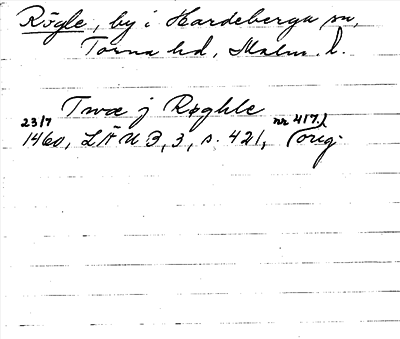 Rögle, by i Hardeberga sn,
Torna hd, Malm. l.
Twæ j Røghle
23/7 nr 417.)
1460, LÄUB, 3, s. 421, (orig.